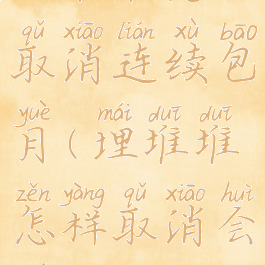 qǔ xiāo lián xù bāo
取消连续包
yuè mái duī duī
月(埋堆堆
zěn yàng qǔ xiāo huì
怎样取消会